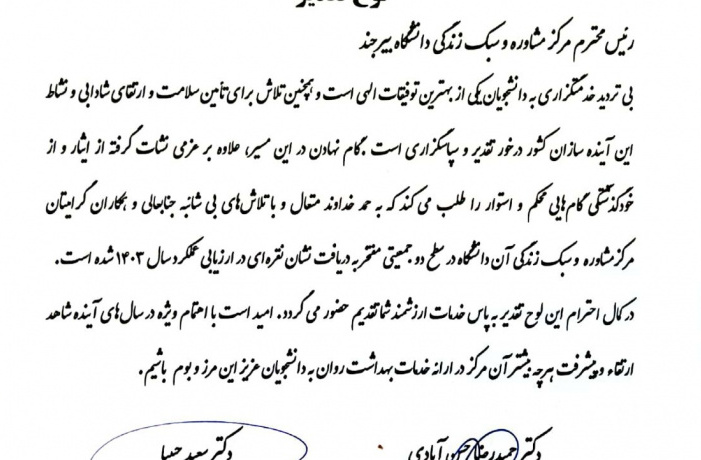 لوح تقدیر
رئیس محترم مرکز مشاوره و سبک زندگی دانشگاه بیرجند
بی تردید خدمتگزاری به دانشجویان یکی از بهترین توفیقات الهی است و همچنین تلاش برای تأمین سلامت و ارتقای شادابی و نشاط
این آینده سازان کشور درخور تقدیر و سپاسگزاری است. گام نهادن در این مسیر، علاوه بر عزمی نشات گرفته از ایثار و از
خودگذشتگی گام‌هایی محکم و استوار را طلب می کند که به حمد خداوند متعال و با تلاش‌های بی شائبه جنابعالی و همکاران گرامیتان
مرکز مشاوره و سبک زندگی آن دانشگاه در سطح دو جمعیتی مفتخر به دریافت نشان نقره‌ای در ارزیابی عملکرد سال ۱۴۰۳ شده است.
در کمال احترام این لوح تقدیر به پاس خدمات ارزشمند شما تقدیم حضور می گردد. امید است با اهتمام ویژه در سال‌های آینده شاهد
ارتقاء و پیشرفت هرچه بیشتر آن مرکز در ارائه خدمات بهداشت روان به دانشجویان عزیز این مرز و بوم باشیم.
دکتر حمیدرضا حسن آبادی دکتر سعید حبیبا